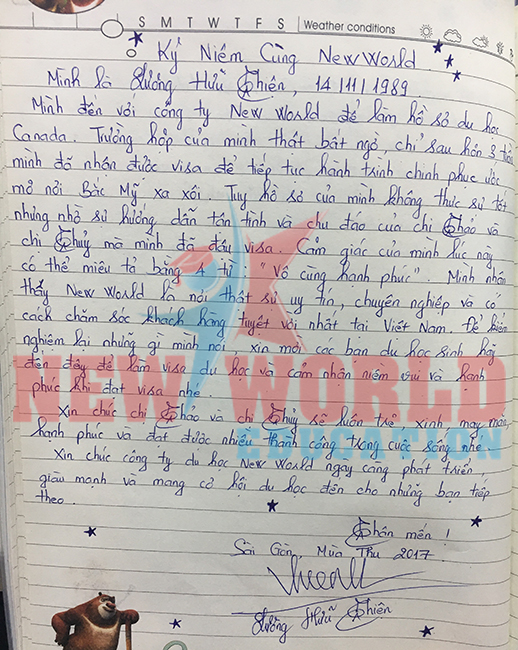 S M T W T F S Weather conditions
Kỷ Niệm Cùng New World
Mình là Lương Hữu Thiên, 14/11/1989.
Mình đến với công ty New World để làm hồ sơ du học
Canada. Trường hợp của mình thật bất ngờ, chỉ sau hơn 3
mình đã nhận được visa để tiếp tục hành trình chinh phục ước
mơ nơi Bắc Mỹ xa xôi. Tuy hồ sơ của mình không thực sự tốt
nhưng nhờ sự hướng dẫn tận tình và chu đáo của chị Thảo và
chị Thuỷ mà mình đã đậu visa. Cảm giác của mình lúc này
có thể miêu tả bằng 4 từ: "Vô cùng hạnh phúc". Mình nhận
thấy New World là nơi thật sự uy tín, chuyên nghiệp và có
cách chăm sóc khách hàng tuyệt vời nhất tại Việt Nam. Để kiểm
nghiệm lại những gì mình nói, xin mời các bạn du học sinh hãy
đến đây để làm visa du học và cảm nhận niềm vui và hạnh
phúc khi đạt visa nhé.
NEW WORLD
EDUCATION
Xin chúc chị Thảo và chị Thuỷ sẽ luôn trẻ, xinh, may mắn,
hạnh phúc và đạt được nhiều thành công trong cuộc sống nhé.
Xin chúc công ty du học New World ngày càng phát triển
giàu mạnh và mang cơ hội du học đến cho những bạn tiếp
theo.
Thân mến!
Sài Gòn, Mùa Thu 2017.
Lương Hữu Thiên